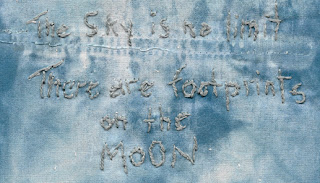 The Sky is no limit
There are footprints
on the
MOON